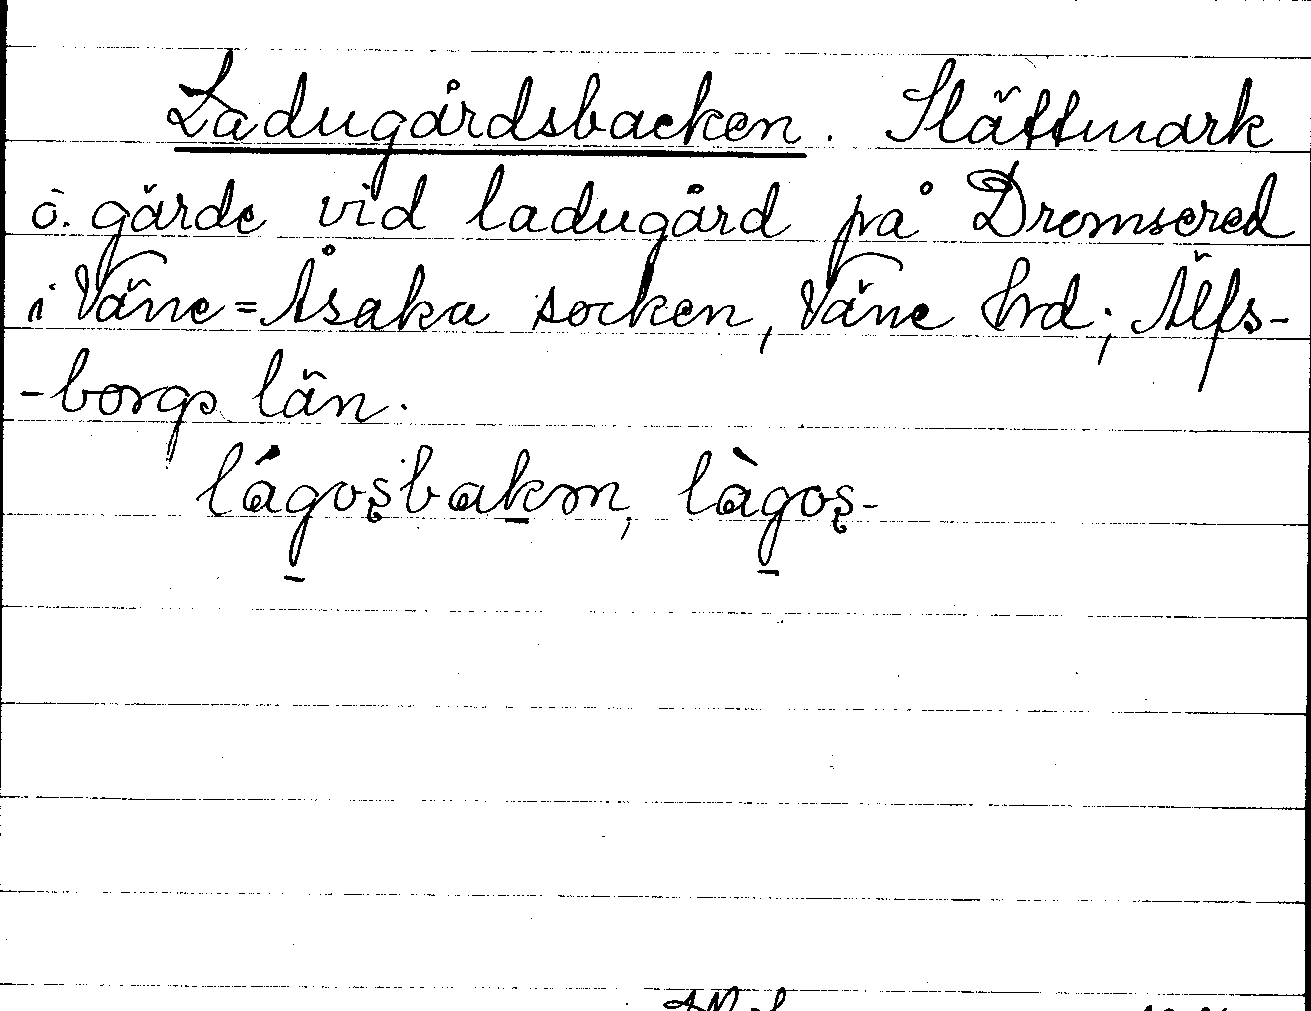 Ladugårdsbacken. Slättmark
o. gärde vid ladugård på Dromsered
i Väne=Åsaka socken, Väne hrd; Älfs-
-borgs län.
lágos̨bakm, làgos̨-